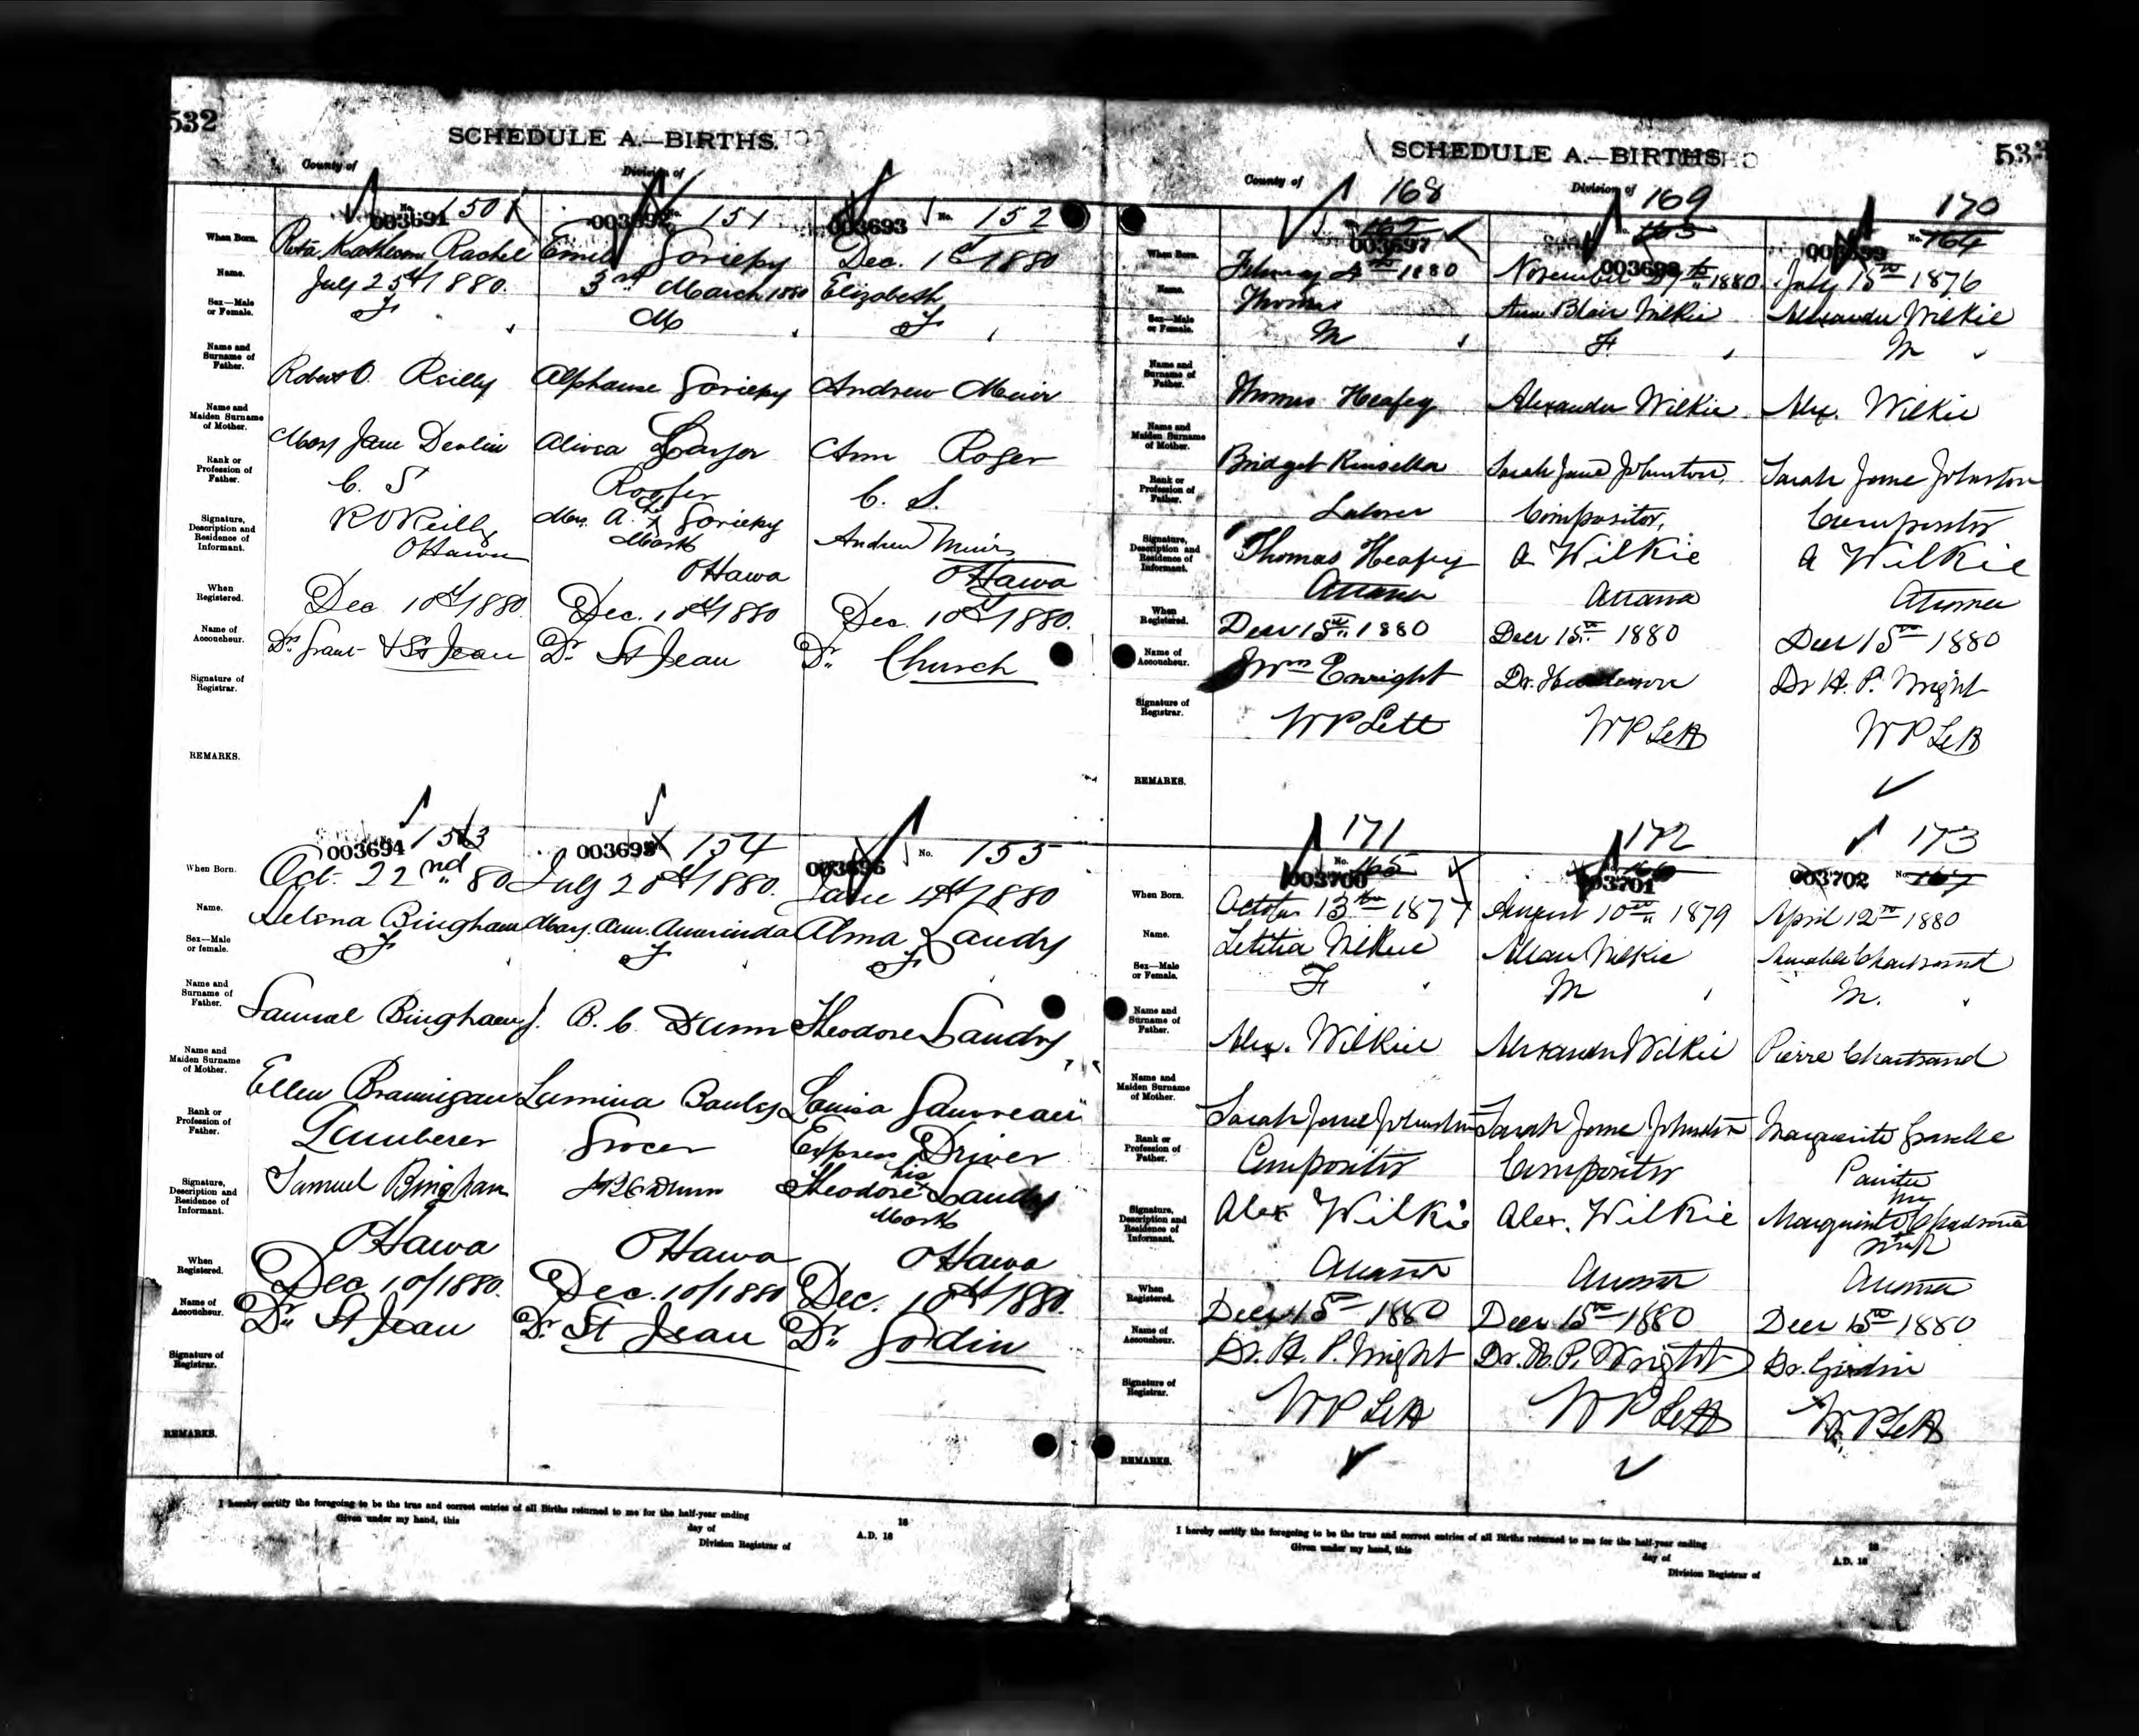 532
SCHEDULE A.—BIRTHS.
County of
Division of
003691
No. 150
151
003693 No. 152
When Born.
Kathleen Rachel
Emile
Dec. 1st 1880
Name.
July 25th 1880.
3rd March 1880
Elizabeth
Sex—Male
or Female.
F
M
F
Name and
Surname of
Father.
Robert O. Reilly
Alphonse
Andrew Muir
Name and
Maiden Surname
of Mother.
Mary Jane Devlin
Ann Roger
Rank or
Profession of
Father.
C. S
Roofer
C. S.
Signature,
Description and
Residence of
Informant.
R O Reilly
Ottawa
Mrs. A. her x
Mark
Ottawa
Andrew Muir
Ottawa
When
Registered.
Dec 10th/1880.
Dec. 10th/1880
Dec. 10th/1880.
Name of
Accoucheur.
Drs Grant & St Jean
Dr. St Jean
Dr. Church
Signature of
Registrar.
REMARKS.
003694 153
003695 154
003696 No. 155
When Born.
Oct. 22nd 80
July 20th/1880.
June 4th/1880
Name.
Selena Bingham
Mary. Ann.
Alma Landry
Sex—Male
or female.
F
F
F
Name and
Surname of
Father.
Samuel Bingham
J. B. C. Dunn
Theodore Landry
Name and
Maiden Surname
of Mother.
Ellen Brannigan
Lumina
Louisa Gauvreau
Rank or
Profession of
Father.
Lumberer
Grocer
Express Driver
Signature,
Description and
Residence of
Informant.
Samuel Bingham
Ottawa
J B C Dunn
Ottawa
his
Theodore x Landry
Mark
Ottawa
When
Registered.
Dec 10/1880.
Dec. 10/1880
Dec. 10th/1880.
Name of
Accoucheur.
Dr. St Jean
Dr. St Jean
Dr. Godin
Signature of
Registrar.
REMARKS.
I hereby certify the foregoing to be the true and correct entries of all Births returned to me for the half-year ending 18
Given under my hand, this day of A.D. 18
Division Registrar of
533
SCHEDULE A.—BIRTHS
County of
Division of
168
169
170
162
163
No. 164
003697
003698
003699
When Born.
February 4th 1880
November 27th 1880.
July 15th 1876
Name.
Thomas
Ann Blair Wilkie
Alexander Wilkie
Sex—Male
or Female.
M
F
M
Name and
Surname of
Father.
Thomas Heafey
Alexander Wilkie
Alex. Wilkie
Name and
Maiden Surname
of Mother.
Bridget Kinsella
Sarah Jane Johnston,
Sarah Jane Johnston
Rank or
Profession of
Father.
Laborer
Compositor,
Compositor
Signature,
Description and
Residence of
Informant.
Thomas Heafey
Ottawa
A Wilkie
Ottawa
A Wilkie
Ottawa
When
Registered.
Decr 15th 1880
Decr 15th 1880
Decr 15th 1880
Name of
Accoucheur.
Wm Enright
Dr. Henderson
Dr H. P. Wright
Signature of
Registrar.
W P Lett
W P Lett
W P Lett
REMARKS.
171
172
173
No. 165
166
No. 167
003700
003701
003702
When Born.
October 13th 1877
August 10th 1879
April 12th 1880
Name.
Letitia Wilkie
Allan Wilkie
Chartrand
Sex—Male
or Female.
F
M
M.
Name and
Surname of
Father.
Alex. Wilkie
Alexander Wilkie
Pierre Chartrand
Name and
Maiden Surname
of Mother.
Sarah Jane Johnston
Sarah Jane Johnston
Marguerite
Rank or
Profession of
Father.
Compositor
Compositor
Painter
Signature,
Description and
Residence of
Informant.
Alex Wilkie
Ottawa
Alex. Wilkie
Ottawa
her
Marguerite x Chartrand
mark
Ottawa
When
Registered.
Decr 15th 1880
Decr 15th 1880
Decr 15th 1880
Name of
Accoucheur.
Dr. H. P. Wright
Dr. H. P. Wright
Dr. Godin
Signature of
Registrar.
W P Lett
W P Lett
W P Lett
REMARKS.
I hereby certify the foregoing to be the true and correct entries of all Births returned to me for the half-year ending 18
Given under my hand, this day of A.D. 18
Division Registrar of